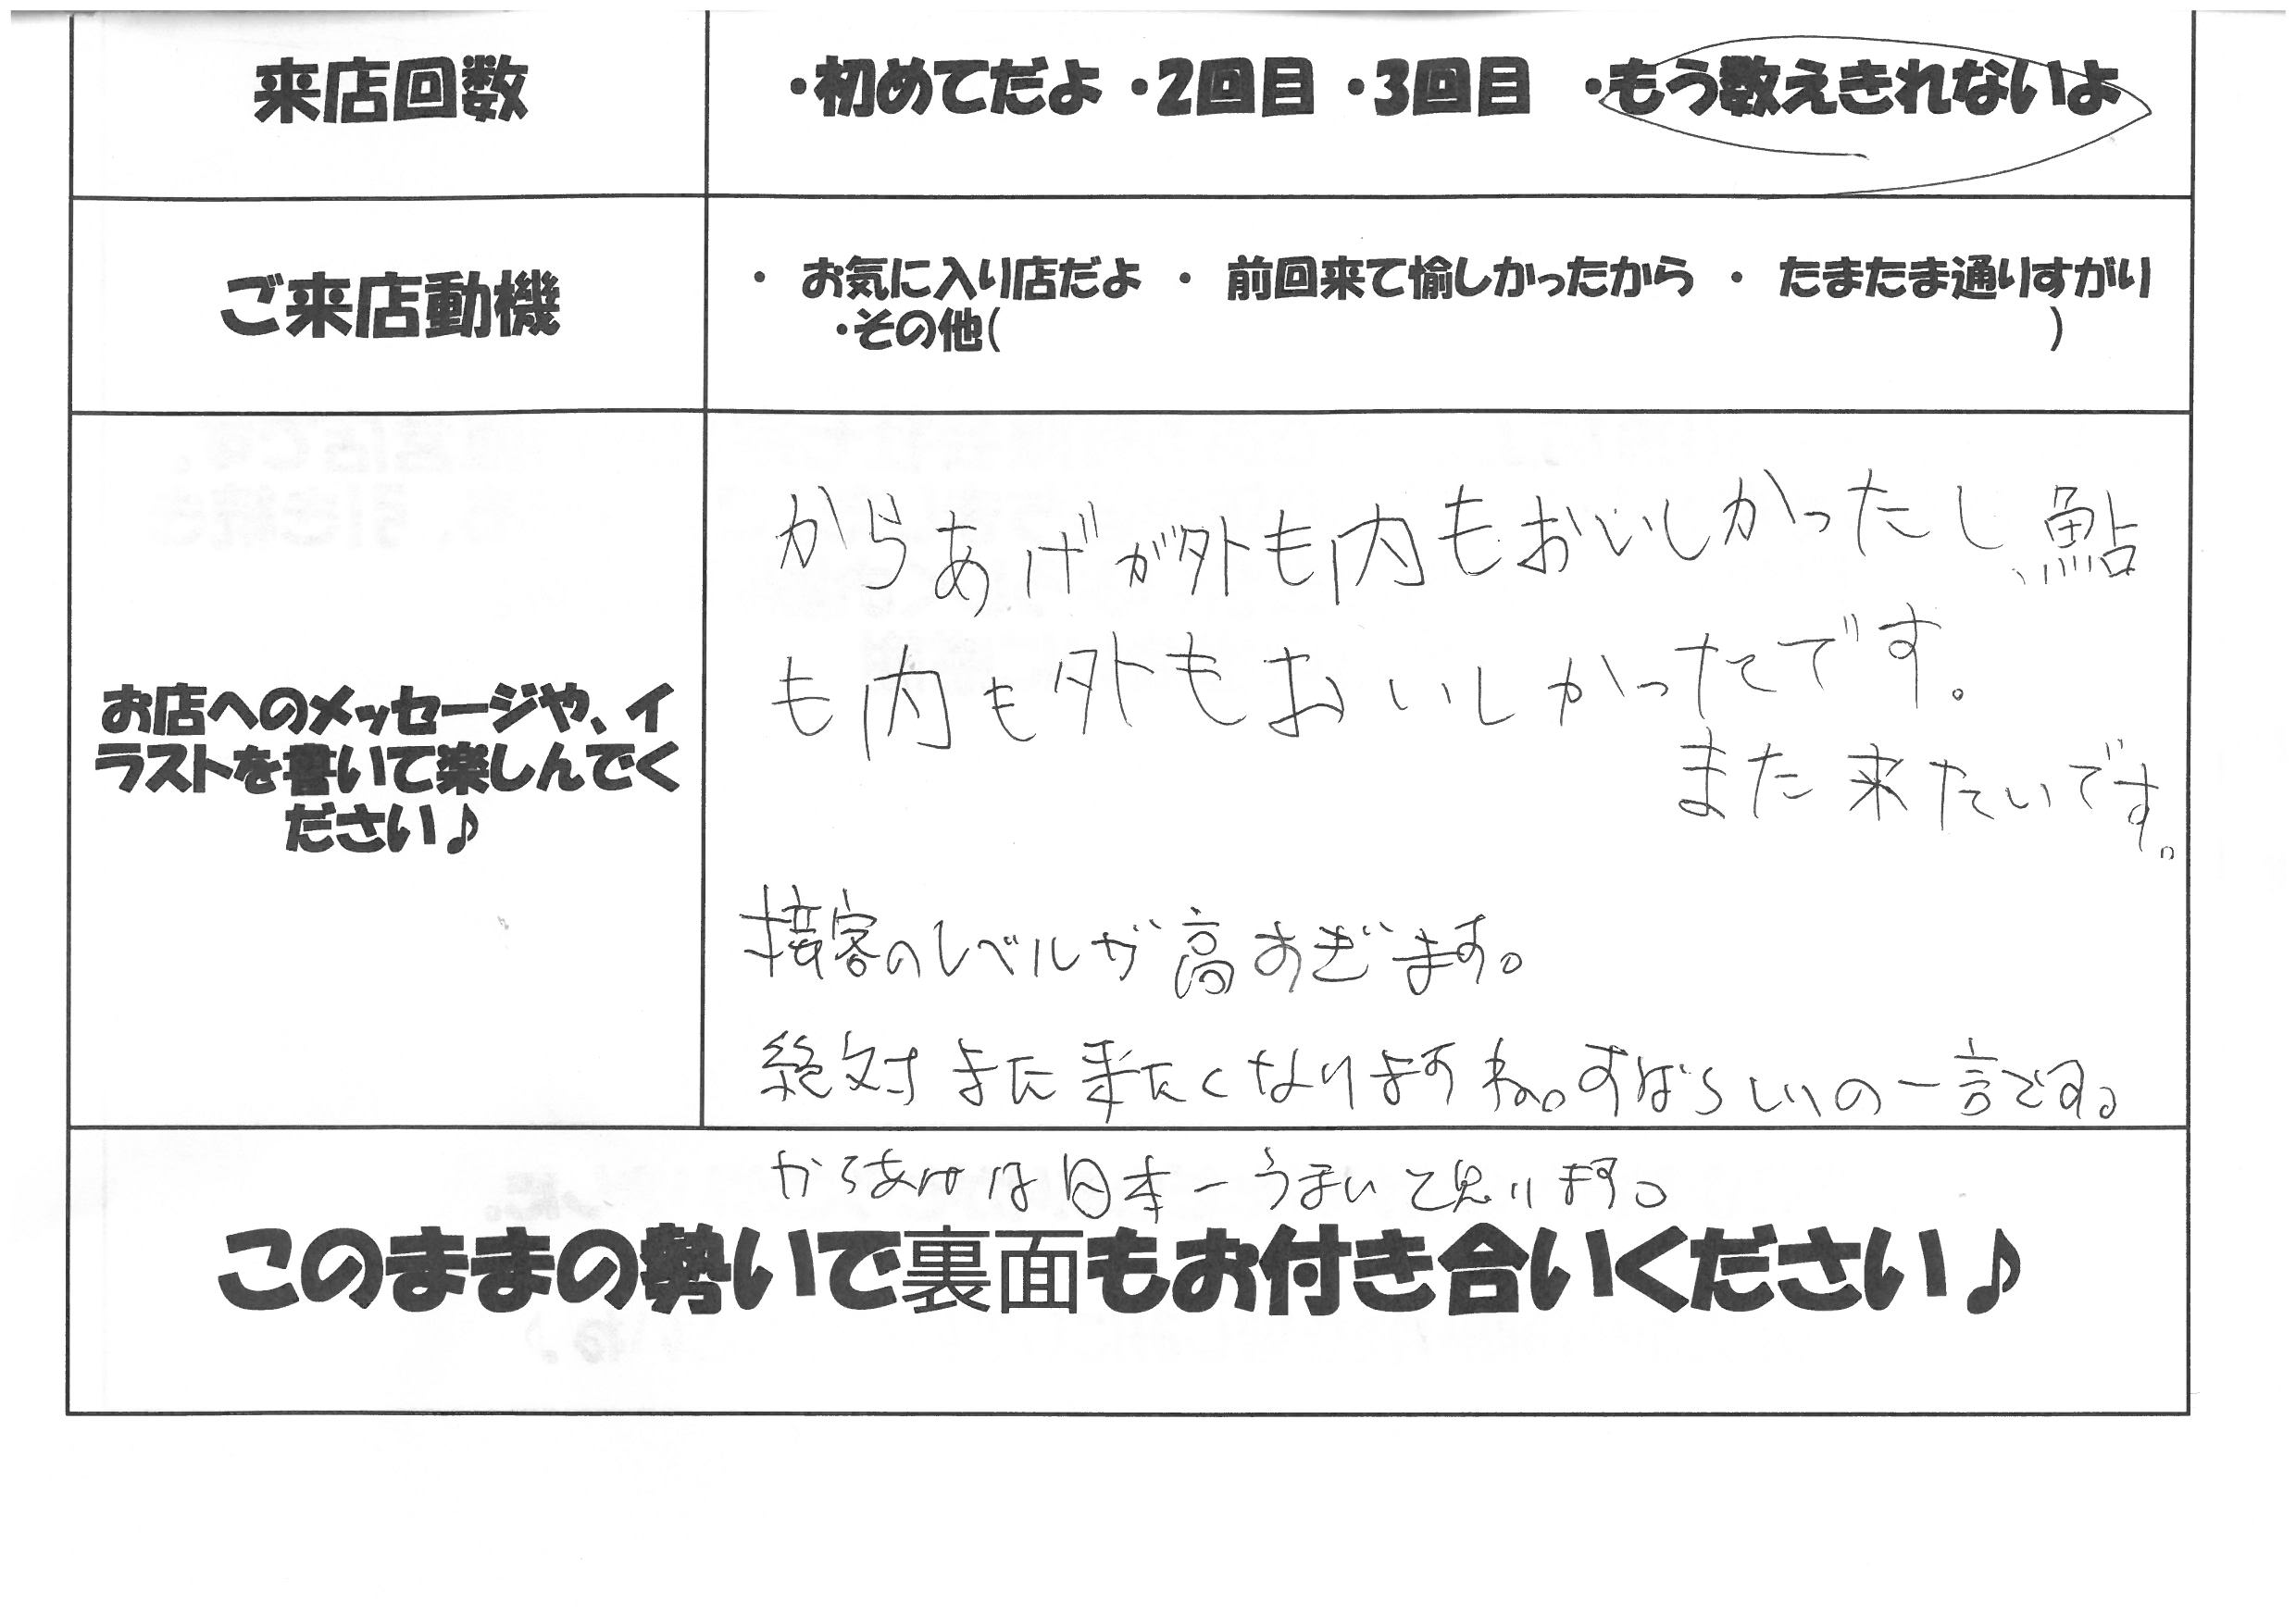 来店回数
・初めてだよ ・2回目 ・3回目 ・もう数えきれないよ
ご来店動機
・ お気に入り店だよ ・ 前回来て愉しかったから ・ たまたま通りすがり
・その他( )
お店へのメッセージや、イ
ラストを書いて楽しんでく
ださい♪
からあげが外も内もおいしかったし、鮎
も内も外もおいしかったです。
また来たいです。
接客のレベルが高すぎます。
絶対また来たくなりますね。すばらしいの一言です。
からあげは日本一うまいと思います。
このままの勢いで裏面もお付き合いください♪